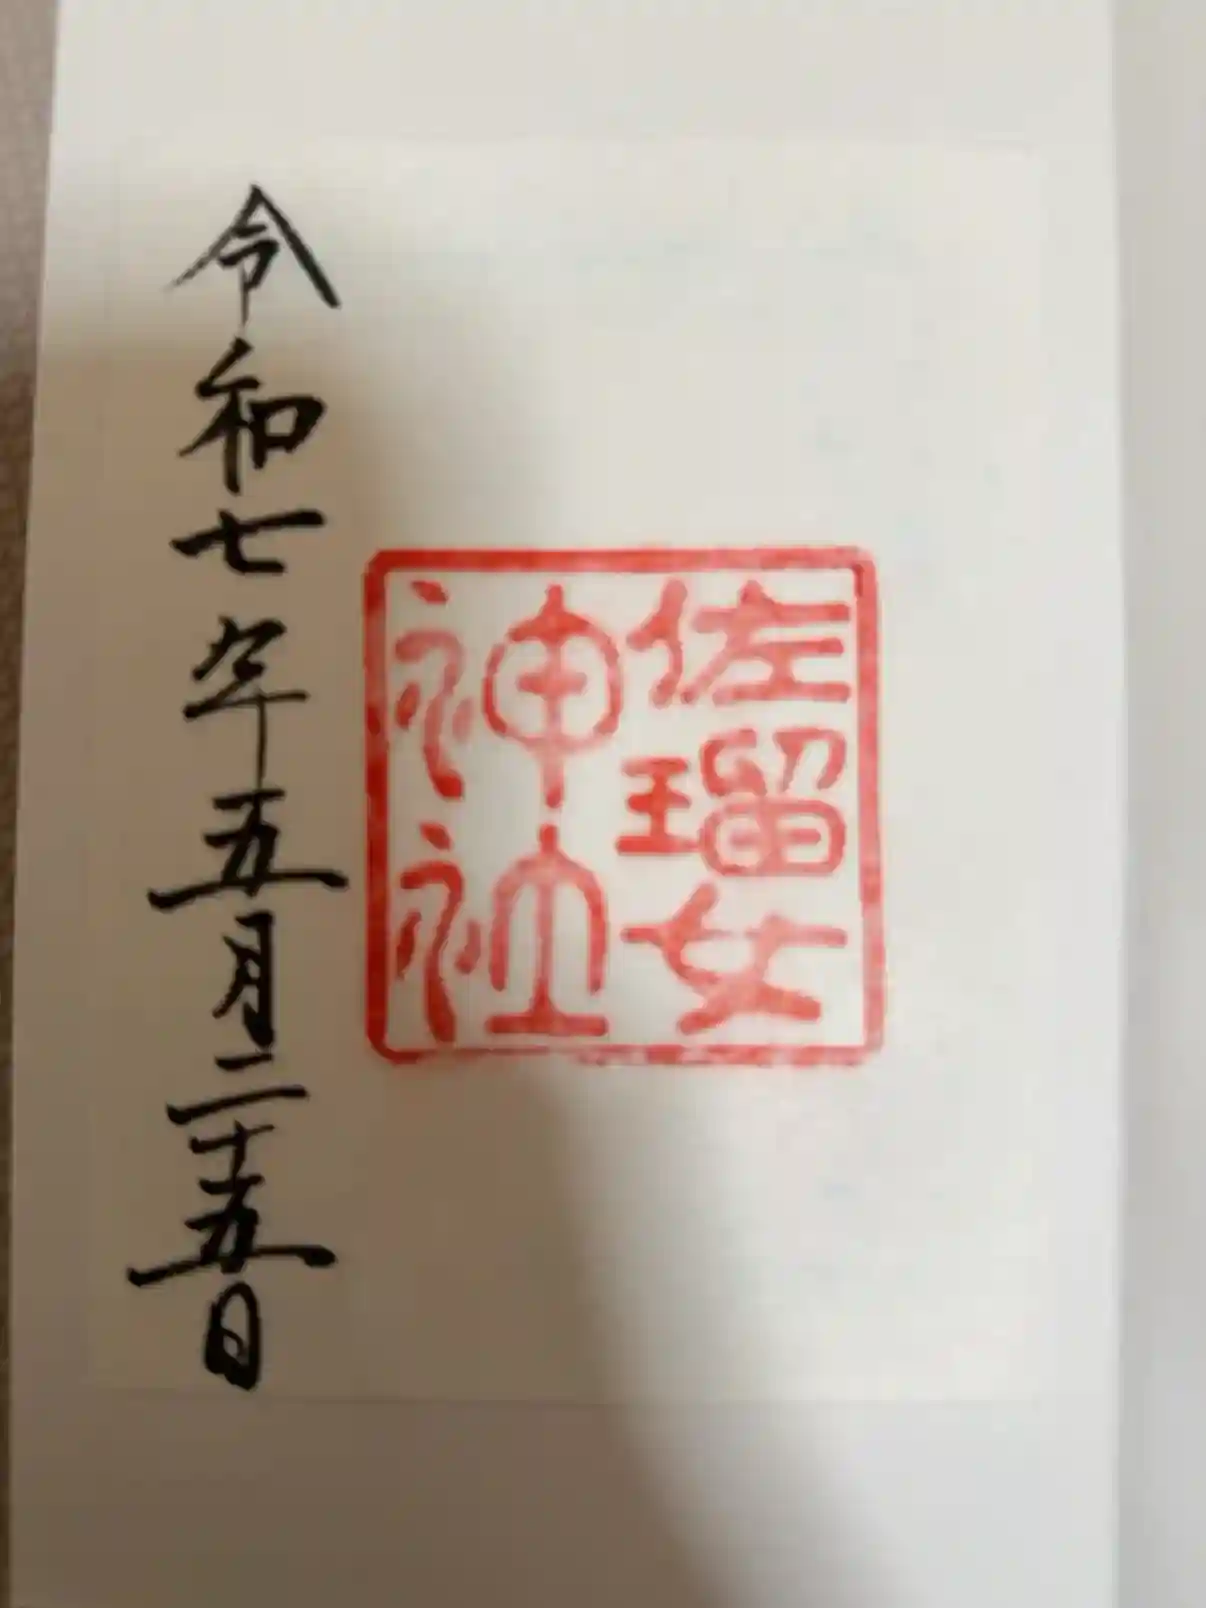 佐瑠女
神社
令和七年五月二十五日